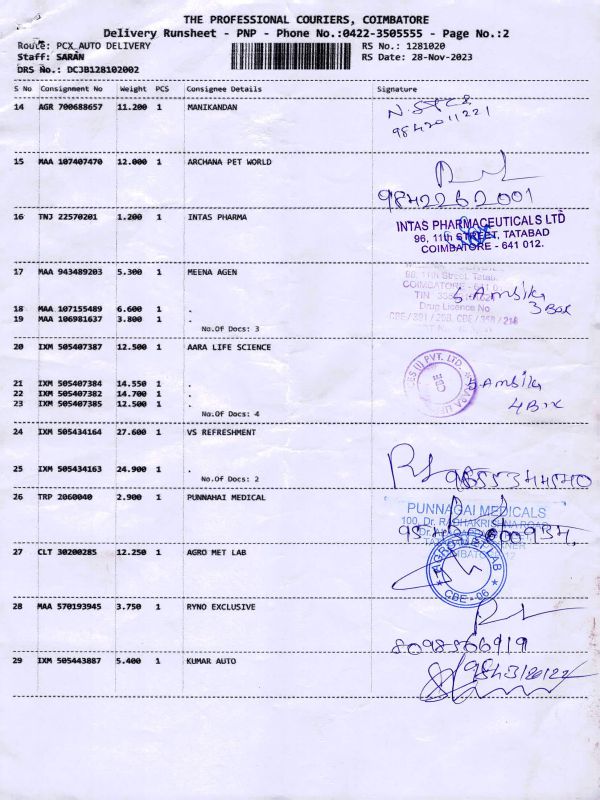 THE PROFESSIONAL COURIERS, COIMBATORE
Delivery Runsheet - PNP - Phone No.:0422-3505555 - Page No.:2
Route: PCX_AUTO DELIVERY RS No.: 1281020
Staff: SARAN RS Date: 28-Nov-2023
DRS No.: DCJB128102002
S No Consignment No Weight PCS Consignee Details Signature
14 AGR 700688657 11.200 1 MANIKANDAN
9842011221
15 MAA 107407470 12.000 1 ARCHANA PET WORLD
9842262001
16 TNJ 22570201 1.200 1 INTAS PHARMA
INTAS PHARMACEUTICALS LTD
96, 11th STREET, TATABAD
COIMBATORE - 641 012.
17 MAA 943489203 5.300 1 MEENA AGEN
98, 11th Street, Tatabad
COIMBATORE - 641 012
Drug Licence No
S Ambika
3 Box
18 MAA 107155489 6.600 1 .
19 MAA 106981637 3.800 1 .
No.Of Docs: 3
20 IXM 505407387 12.500 1 AARA LIFE SCIENCE
21 IXM 505407384 14.550 1 .
22 IXM 505407382 14.700 1 .
23 IXM 505407385 12.500 1 .
S Ambika
4 Box
No.Of Docs: 4
24 IXM 505434164 27.600 1 VS REFRESHMENT
25 IXM 505434163 24.900 1 .
No.Of Docs: 2
26 TRP 2060040 2.900 1 PUNNAHAI MEDICAL
PUNNAGAI MEDICALS
100, Dr. RADHAKRISHNA ROAD
27 CLT 30200285 12.250 1 AGRO MET LAB
AGRO MET LAB
CBE - 06
28 MAA 570193945 3.750 1 RYNO EXCLUSIVE
8098566919
29 IXM 505443887 5.400 1 KUMAR AUTO